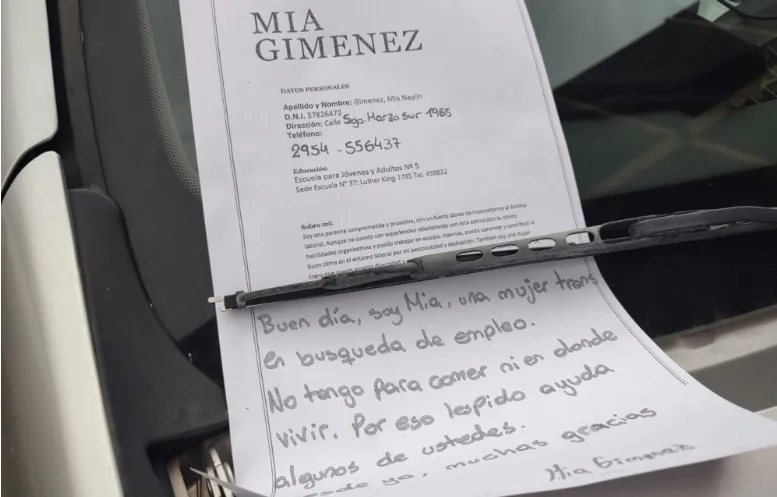 MIA
GIMENEZ
DATOS PERSONALES
Apellido y Nombre: Gimenez, Mia Neylin
D.N.I. 37826472
Dirección: Calle Sgo. Marzo Sur 1965
Teléfono:
2954 - 556437
Educación
Escuela para Jóvenes y Adultos Nº 5
Sede Escuela N° 37: Luther King 1785 Tel. 438832
Sobre mi:
Soy una persona comprometida y proactiva, con un fuerte deseo de incorporarme al ámbito
laboral. Aunque no cuento con experiencias relacionadas con esta convocatoria, poseo
habilidades organizativas y puedo trabajar en equipo. Además, puedo aprender y contribuir al
buen clima en el entorno laboral por mi personalidad y dedicación. También soy una mujer
trans que
Buen día, soy Mia, una mujer trans
en busqueda de empleo.
No tengo para comer ni en donde
vivir. Por eso les pido ayuda
algunos de ustedes.
ya, muchas gracias
Mia Gimenez